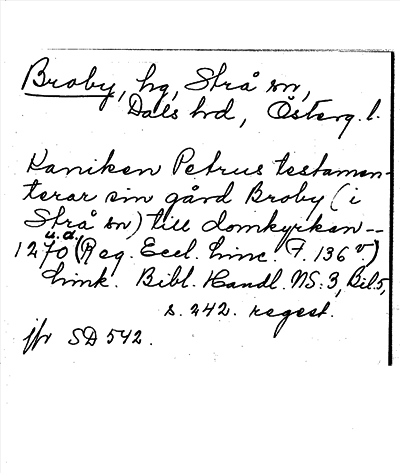 Broby, hg, Strå sn,
Dals hd, Österg. l.
Kaniken Petrus testamen-
terar sin gård Broby (i
Strå sn) till domkyrkan --
u.å.
1270 (Reg. Eccl. Linc. F. 136 v)
Link. Bibl. Handl. NS: 3, Bil. 5,
s. 242. regest.
jfr SD 542.